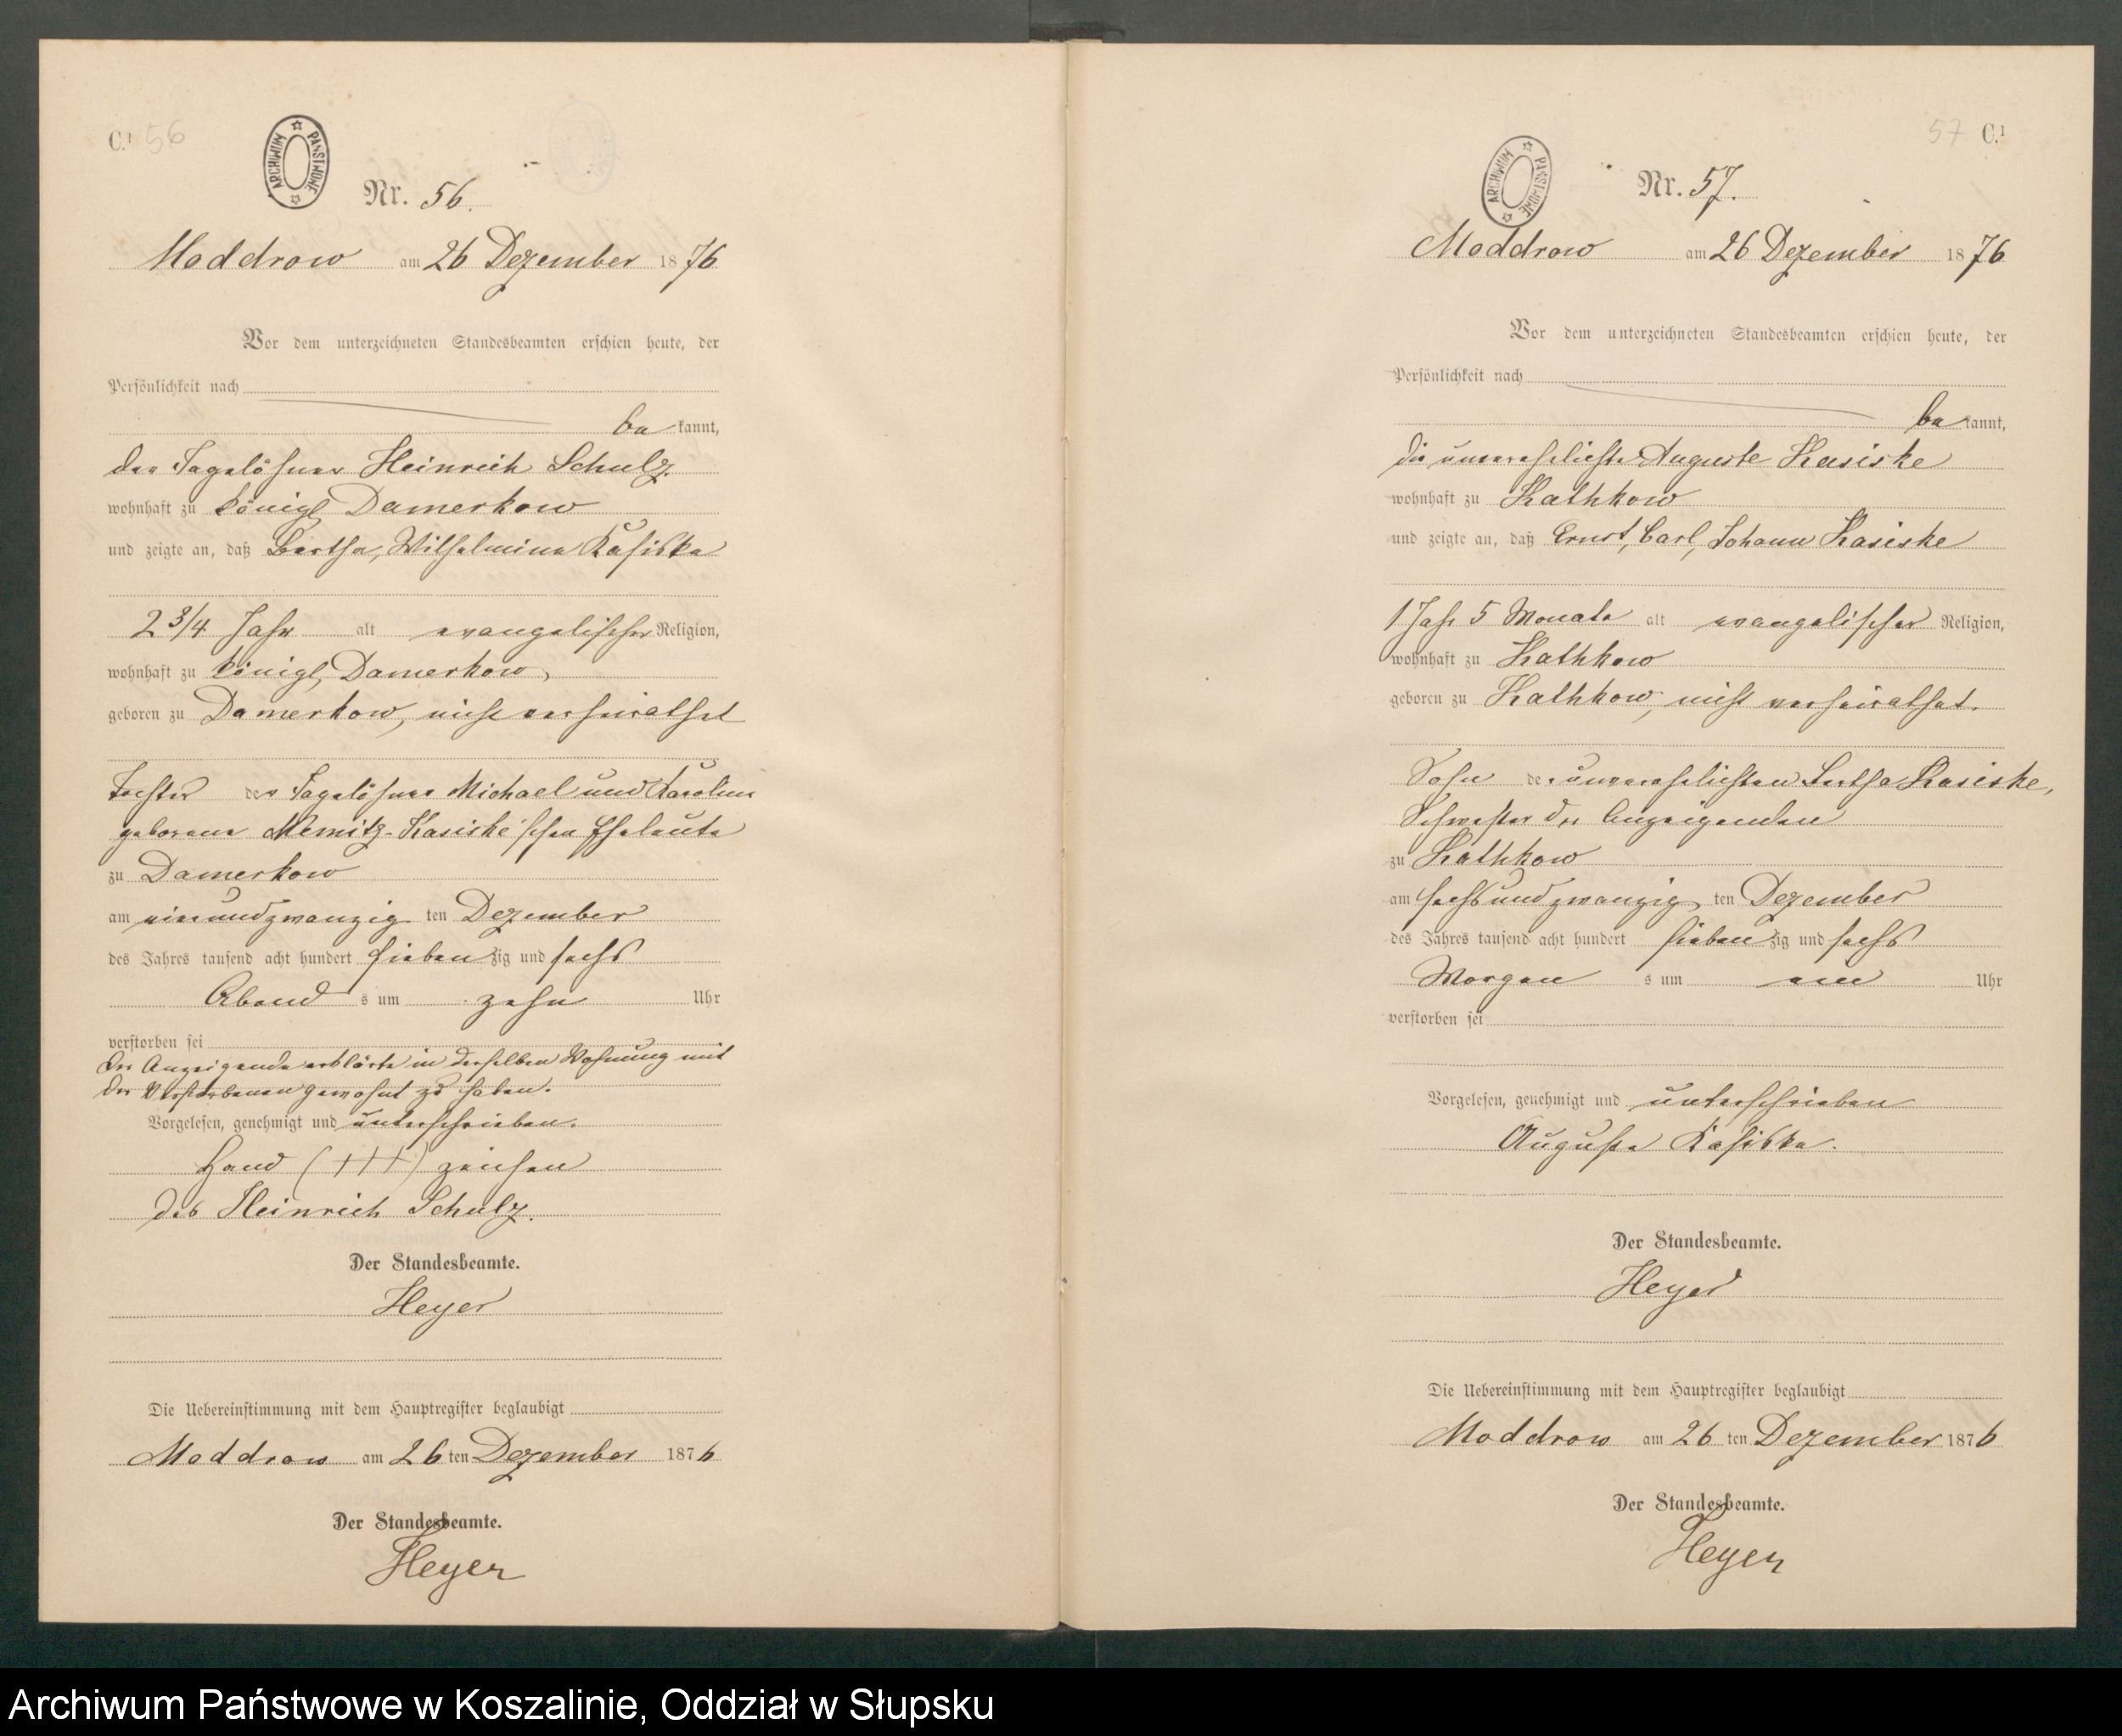 C.¹ 56
ARCHIWUM PAŃSTWOWE
Nr. 56.
Moddrow am 26 Dezember 1876
Vor dem unterzeichneten Standesbeamten erschien heute, der
Persönlichkeit nach
bekannt,
der Tagelöhner Heinrich Schulz.
wohnhaft zu königl Damerkow
und zeigte an, daß Bertha, Wilhelmine Kasiske
2 3/4 Jahr alt evangelischer Religion,
wohnhaft zu königl, Damerkow,
geboren zu Damerkow, nicht verheirathet
Tochter der Tagelöhner Michael und Karoline
geborene Nemitz-Kasiske'schen Eheleute
zu Damerkow
am einundzwanzig ten Dezember
des Jahres tausend acht hundert siebenzig und sechs
Abend s um zehn Uhr
verstorben sei
Der Anzeigende erklärte in derselben Wohnung mit
der Verstorbenen gewohnt zu haben.
Vorgelesen, genehmigt und unterschrieben.
Hand (+++) zeichen
des Heinrich Schulz.
Der Standesbeamte.
Heyer
Die Uebereinstimmung mit dem Hauptregister beglaubigt
Moddrow am 26 ten Dezember 1876
Der Standesbeamte.
Heyer
57 C.¹
ARCHIWUM PAŃSTWOWE
Nr. 57.
Moddrow am 26 Dezember 1876
Vor dem unterzeichneten Standesbeamten erschien heute, der
Persönlichkeit nach
bekannt,
die unverehelichte Auguste Kasiske
wohnhaft zu Kathkow
und zeigte an, daß Ernst, Carl, Johann Kasiske
1 Jahr 5 Monate alt evangelischer Religion,
wohnhaft zu Kathkow
geboren zu Kathkow, nicht verheirathet.
Sohn der unverehelichten Bertha Kasiske,
Schwester der Anzeigenden
zu Kathkow
am sechsundzwanzig ten Dezember
des Jahres tausend acht hundert siebenzig und sechs
Morgen s um ein Uhr
verstorben sei
Vorgelesen, genehmigt und unterschrieben
Auguste Kasiske.
Der Standesbeamte.
Heyer
Die Uebereinstimmung mit dem Hauptregister beglaubigt
Moddrow am 26 ten Dezember 1876
Der Standesbeamte.
Heyer
Archiwum Państwowe w Koszalinie, Oddział w Słupsku